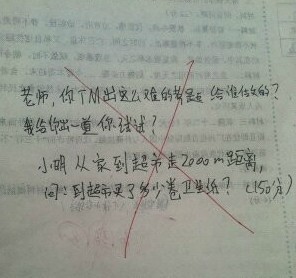 老师，你TM出这么难的考题 给谁做的？
我给你出一道 你试试？
小明从家到超市走2000m距离，
问：到超市买了多少卷卫生纸？（150分）